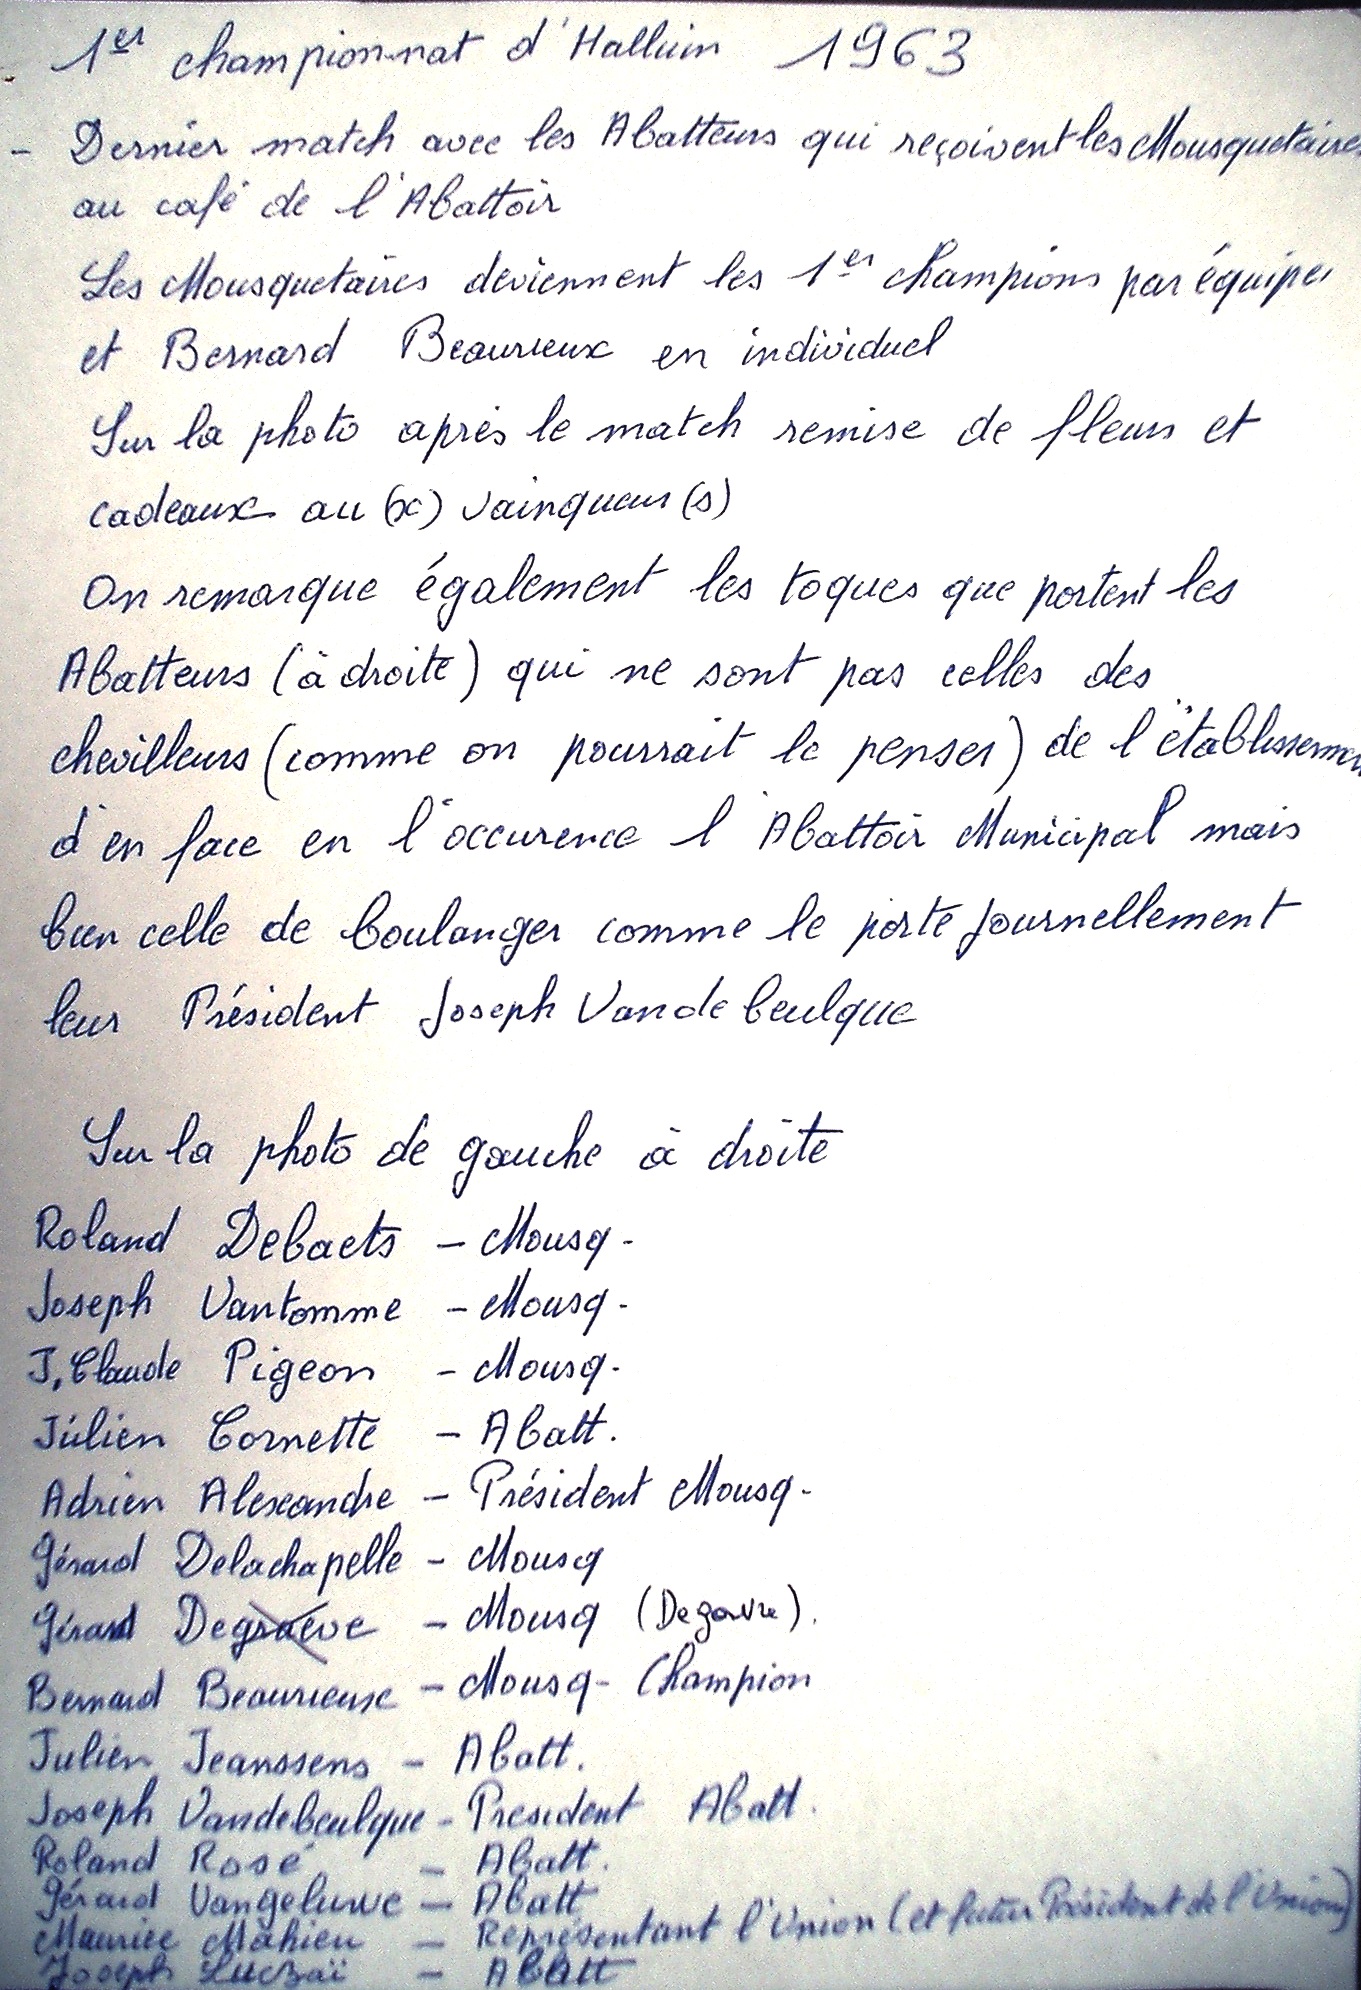 1er championnat d'Halluin 1963
- Dernier match avec les Abatteurs qui reçoivent les Mousquetaires
au café de l'Abattoir
Les Mousquetaires deviennent les 1er champions par équipes
et Bernard Beaurieux en individuel
Sur la photo après le match remise de fleurs et
cadeaux au (x) vainqueur (s)
On remarque également les toques que portent les
Abatteurs (à droite) qui ne sont pas celles des
chevilleurs (comme on pourrait le penser) de l'établissemen
d'en face en l'occurence l'Abattoir Municipal mais
bien celle de boulanger comme le porte journellement
leur Président Joseph Vandebeulque
Sur la photo de gauche à droite
Roland Debaets - Mousq-
Joseph Vantomme - Mousq-
J. Claude Pigeon - Mousq-
Julien Cornette - Abatt.
Adrien Alexandre - Président Mousq-
Gérard Delachapelle - Mousq
Gérard Degraeve - Mousq (Degavre).
Bernard Beaurieux - Mousq- Champion
Julien Jeanssens - Abatt.
Joseph Vandebeulque - President Abatt.
Roland Rosé - Abatt.
Gérard Vangeluwe - Abatt
Maurice Mahieu - Représentant l'Union (et futur Président de l'Union)
Joseph - Abatt